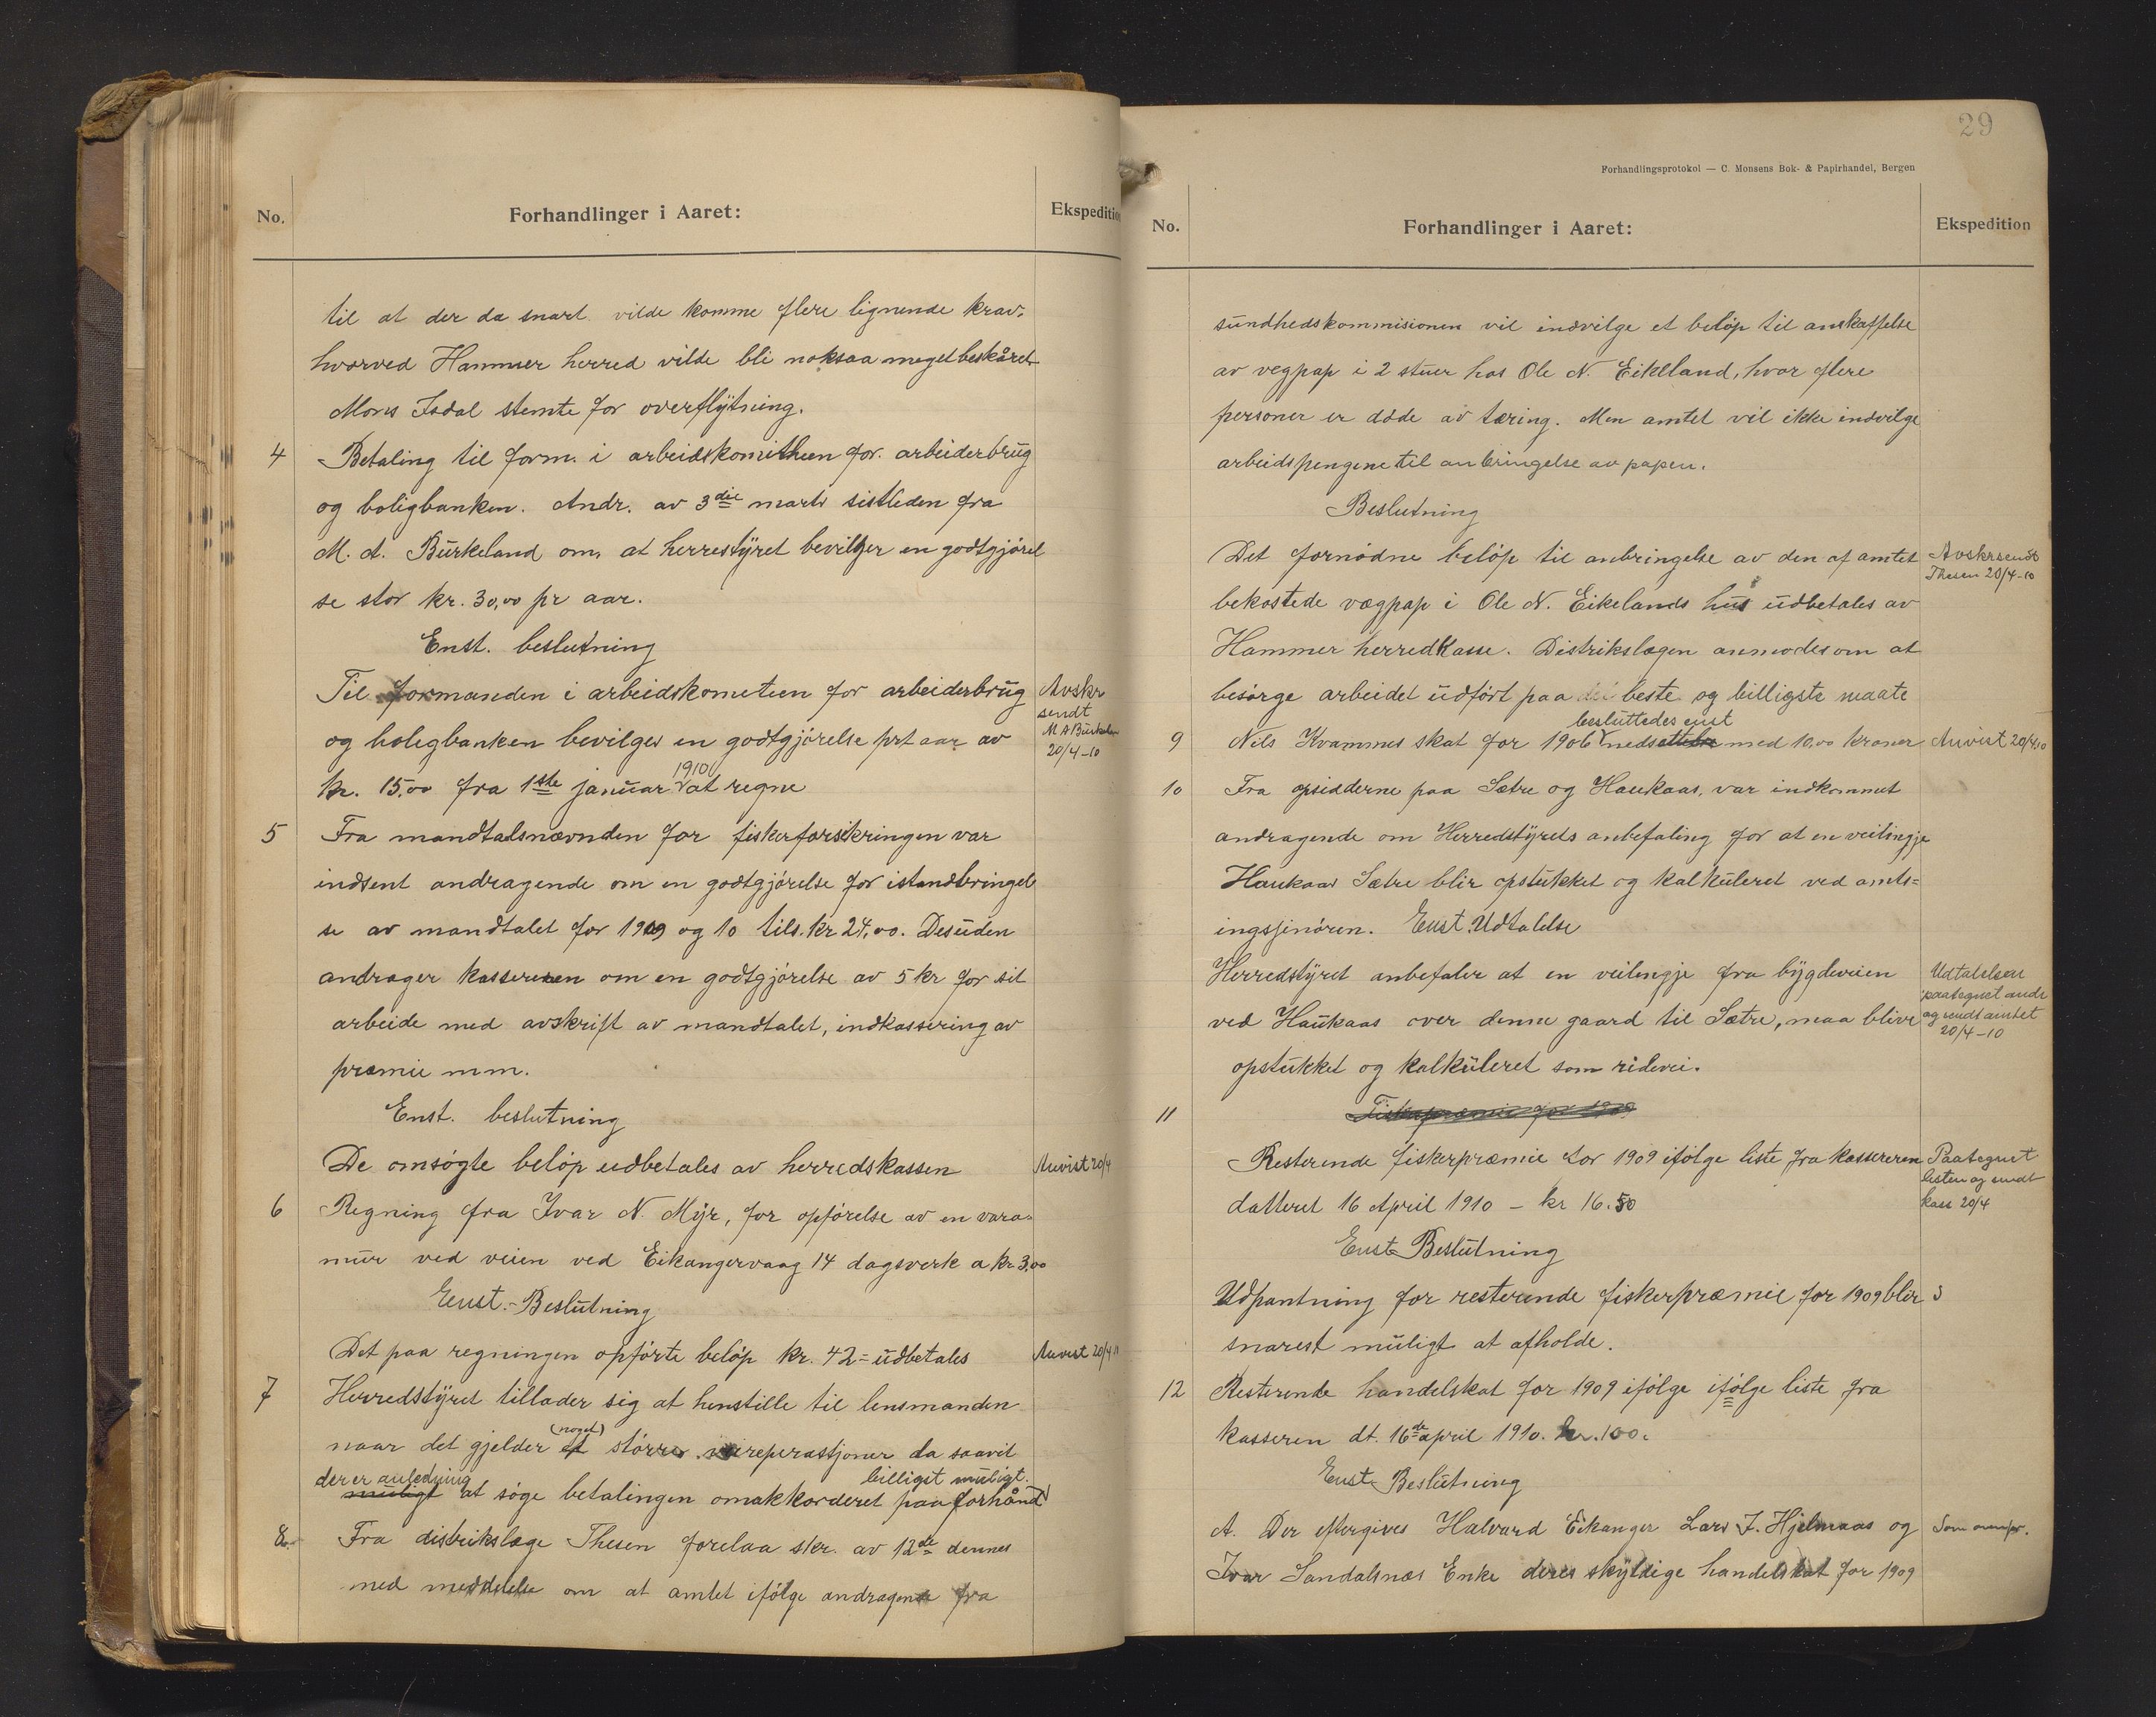 No.
Forhandlinger i Aaret:
Ekspedition
til at der da snart vilde komme flere lignende krav.
hvorved Hammer herred vilde bli noksaa meget beskåret
Mons Isdal stemte for overflytning.
4 Betaling til form. i arbeidskomitheen for arbeiderbrug
og boligbanken. Andr. av 3die marts sistleden fra
M. A. Burkeland om, at herrestyret bevilger en godtgjørel
se stor kr. 30,00 pr aar.
Enst. beslutning
Til formanden i arbeidskometeen for arbeiderbrug
og boligbanken bevilges en godtgjørelse prt aar av
kr. 15,00 fra 1ste januar 1910 at regne
Avskr
sendt
M A Burkeland
20/4-10
5 Fra mandtalsnævnden for fiskerforsikringen var
indsent andragende om en godtgjørelse for istandbringel
se av mandtalet for 1909 og 10 tils. kr 24,00. Desuden
andrager kassereren om en godtgjørelse av 5 kr for sit
arbeide med avskrift av mandtalet, indkassering av
præmie m m.
Enst. beslutning
De omsøgte beløp udbetales av herredskassen
Anvist 20/4
6 Regning fra Ivar N. Myr, for opførelse av en vara-
mur ved veien ved Eikangervaag 14 dagsverk a kr 3,00
Enst. Beslutning
Det paa regningen opførte beløp kr. 42= udbetales
Anvist 20/4
7 Herredstyret tillader sig at henstille til lensmanden
naar det gjelder et (noget) større veireperastjoner da saavit
der er anledning muligt at søge betalingen omakkorderet paa forhånd billigst muligt.
8 Fra distrikslæge Thesen forelaa skr. av 12de dennes
med meddelelse om at amtet ifølge andragende fra
29
Forhandlingsprotokol — C. Monsens Bok- & Papirhandel, Bergen
No.
Forhandlinger i Aaret:
Ekspedition
sundhedskommisionen vil indvilge et beløp til anskaffelse
av vegpap i 2 stuer hos Ole N. Eikeland, hvor flere
personer er døde av tæring. Men amtet vil ikke indvilge
arbeidspengene til anbringelse av papen.
Beslutning
Det fornødne beløp til anbringelse av den af amtet
bekostede vægpap i Ole N. Eikelands hus udbetales av
Hammer herredkasse. Distrikslægen anmodes om at
besørge arbeidet udført paa beste og billigste maate
Avskr sendt
Thesen 20/4-10
9 Nils Kvammes skat for 1906 besluttedes enst nedsættes med 10,00 kroner
Anvist 20/4 10
10 Fra opsidderne paa Sætre og Haukaas, var indkommet
andragende om Herredstyrets anbefaling for at en veilingje
Haukaas Sætre blir opstukket og kalkuleret ved amts=
ingsjenøren. Enst. Udtalelse
Herredstyret anbefaler at en veilengje fra bygdeveien
ved Haukaas over denne gaard til Sætre, maa blive
opstukket og kalkuleret som ridevei.
Udtalelsen
paategnet andr
og sendt amtet
20/4-10
11 Fiskepræmie for 1909
Resterende fiskerpræmie for 1909 ifølge liste fra kassereren
datteret 16 April 1910 - kr 16.50
Paategnet
listen og sendt
kass 20/4
Enst Beslutning
Udpantning for resterende fiskerpræmie for 1909 blir
snarest muligt at afholde.
12 Resterende handelskat for 1909 ifølge ifølge liste fra
kasseren dt. 16de april 1910. kr. 100.
Enst Beslutning
A. Der eftergives Halvard Eikanger Lars J. Hjelmaas og
Ivar Sandalsnæs Enke deres skyldige handelskat for 1909
Som ovenfor.